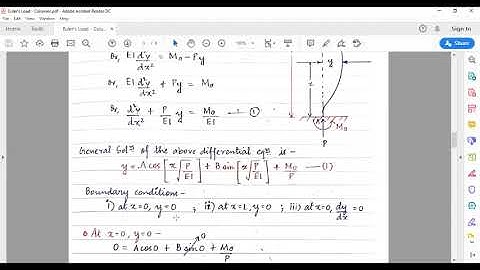 Euler's Load - Columns.pdf - Adobe Acrobat Reader DC
File Edit View Window Help
Home Tools
Sign In
or, EI d²y/dx² = M₀ - Py
or, EI d²y/dx² + Py = M₀
or, d²y/dx² + P/EI y = M₀/EI — ①
y
x
M₀
P
General Solⁿ of the above differential eqⁿ is -
y = A cos [x √P/EI] + B sin [x √P/EI] + M₀/P — (1)
Boundary conditions -
i) at x=0, y=0 ; ii) at x=L, y=0 ; iii) at x=0, dy/dx = 0
At x=0, y=0 -
0
0 = A cos 0 + B sin 0 + M₀/P